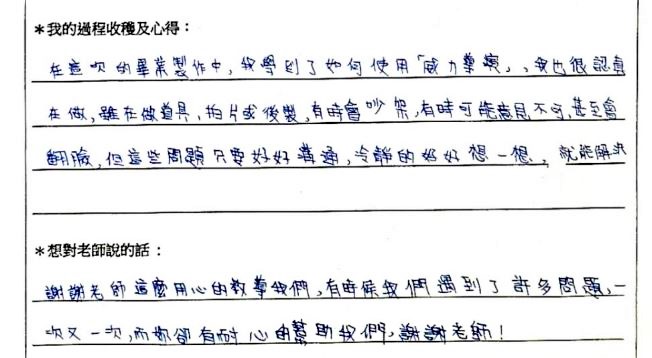 *我的過程收穫及心得：
在這次的畢業製作中，我學到了如何使用「威力導演」，我也很認真
在做，雖在做道具、拍片或後製，有時會吵架，有時可能意見不可，甚至會
翻臉，但這些問題只要好好溝通，冷靜的好好想一想，就能解決
*想對老師說的話：
謝謝老師這麼用心的教導我們，有時候我們遇到了許多問題，一
次又一次，而妳卻有耐心的幫助我們，謝謝老師！